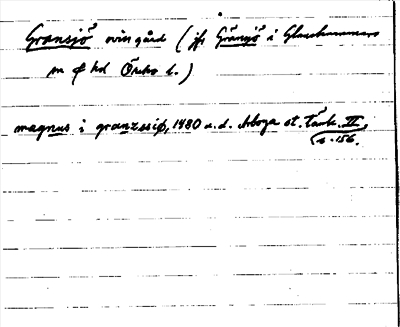 Gransjö övin gård (jfr Gränsjö i Glanshammars
sn o hd Örebro l.)
magnus i granzsiø, 1480 u.d. Arboga st. tänk. II,
s. 156.